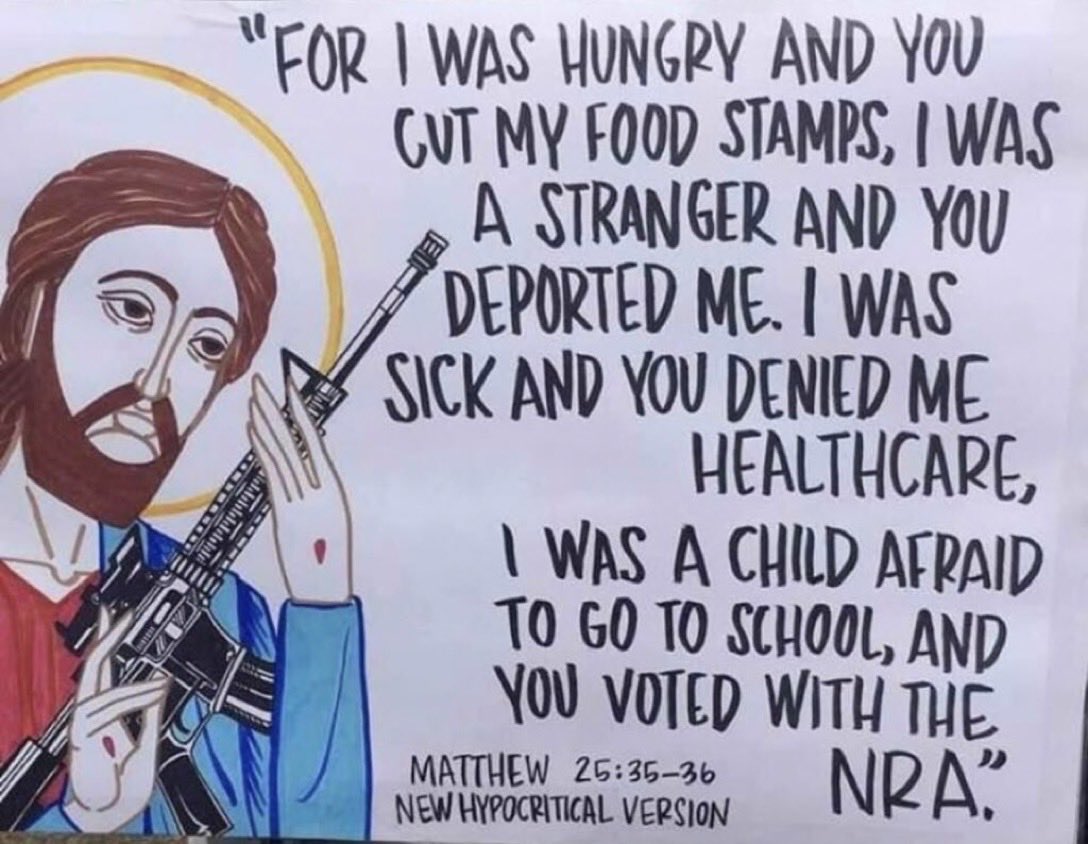 "FOR I WAS HUNGRY AND YOU
CUT MY FOOD STAMPS, I WAS
A STRANGER AND YOU
DEPORTED ME. I WAS
SICK AND YOU DENIED ME
HEALTHCARE,
I WAS A CHILD AFRAID
TO GO TO SCHOOL, AND
YOU VOTED WITH THE
NRA."
MATTHEW 25:35-36
NEW HYPOCRITICAL VERSION